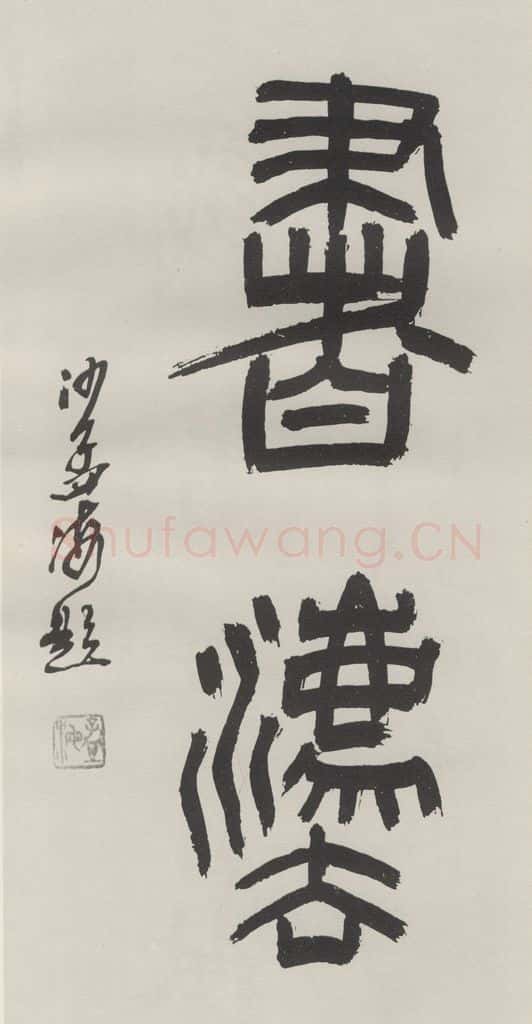 書灋
沙孟海題
Shufawang.CN